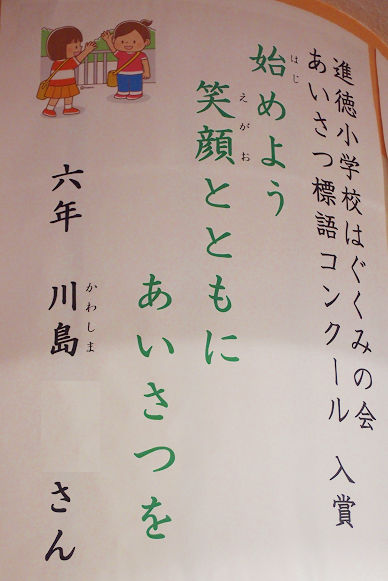 進徳小学校はぐくみの会
あいさつ標語コンクール 入賞
始めよう
はじ
笑顔とともに
えがお
あいさつを
六年 川島 さん
かわしま